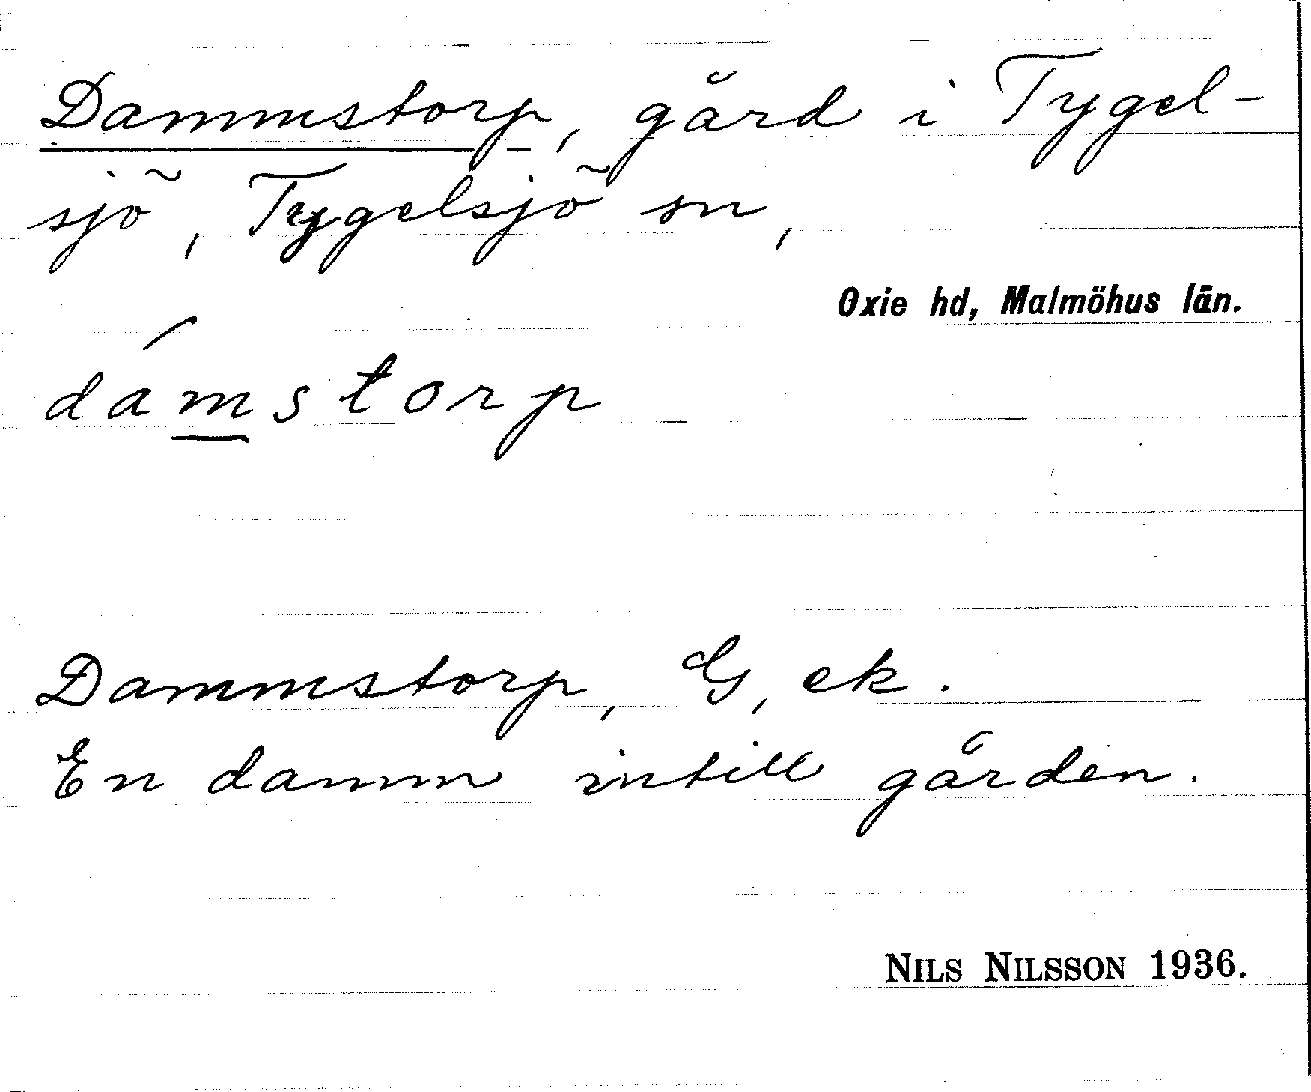 Dammstorp, gård i Tygel-
sjö, Tygelsjö sn,
Oxie hd, Malmöhus län.
dámstorp
Dammstorp, G, ek.
En damm intill gården.
NILS NILSSON 1936.